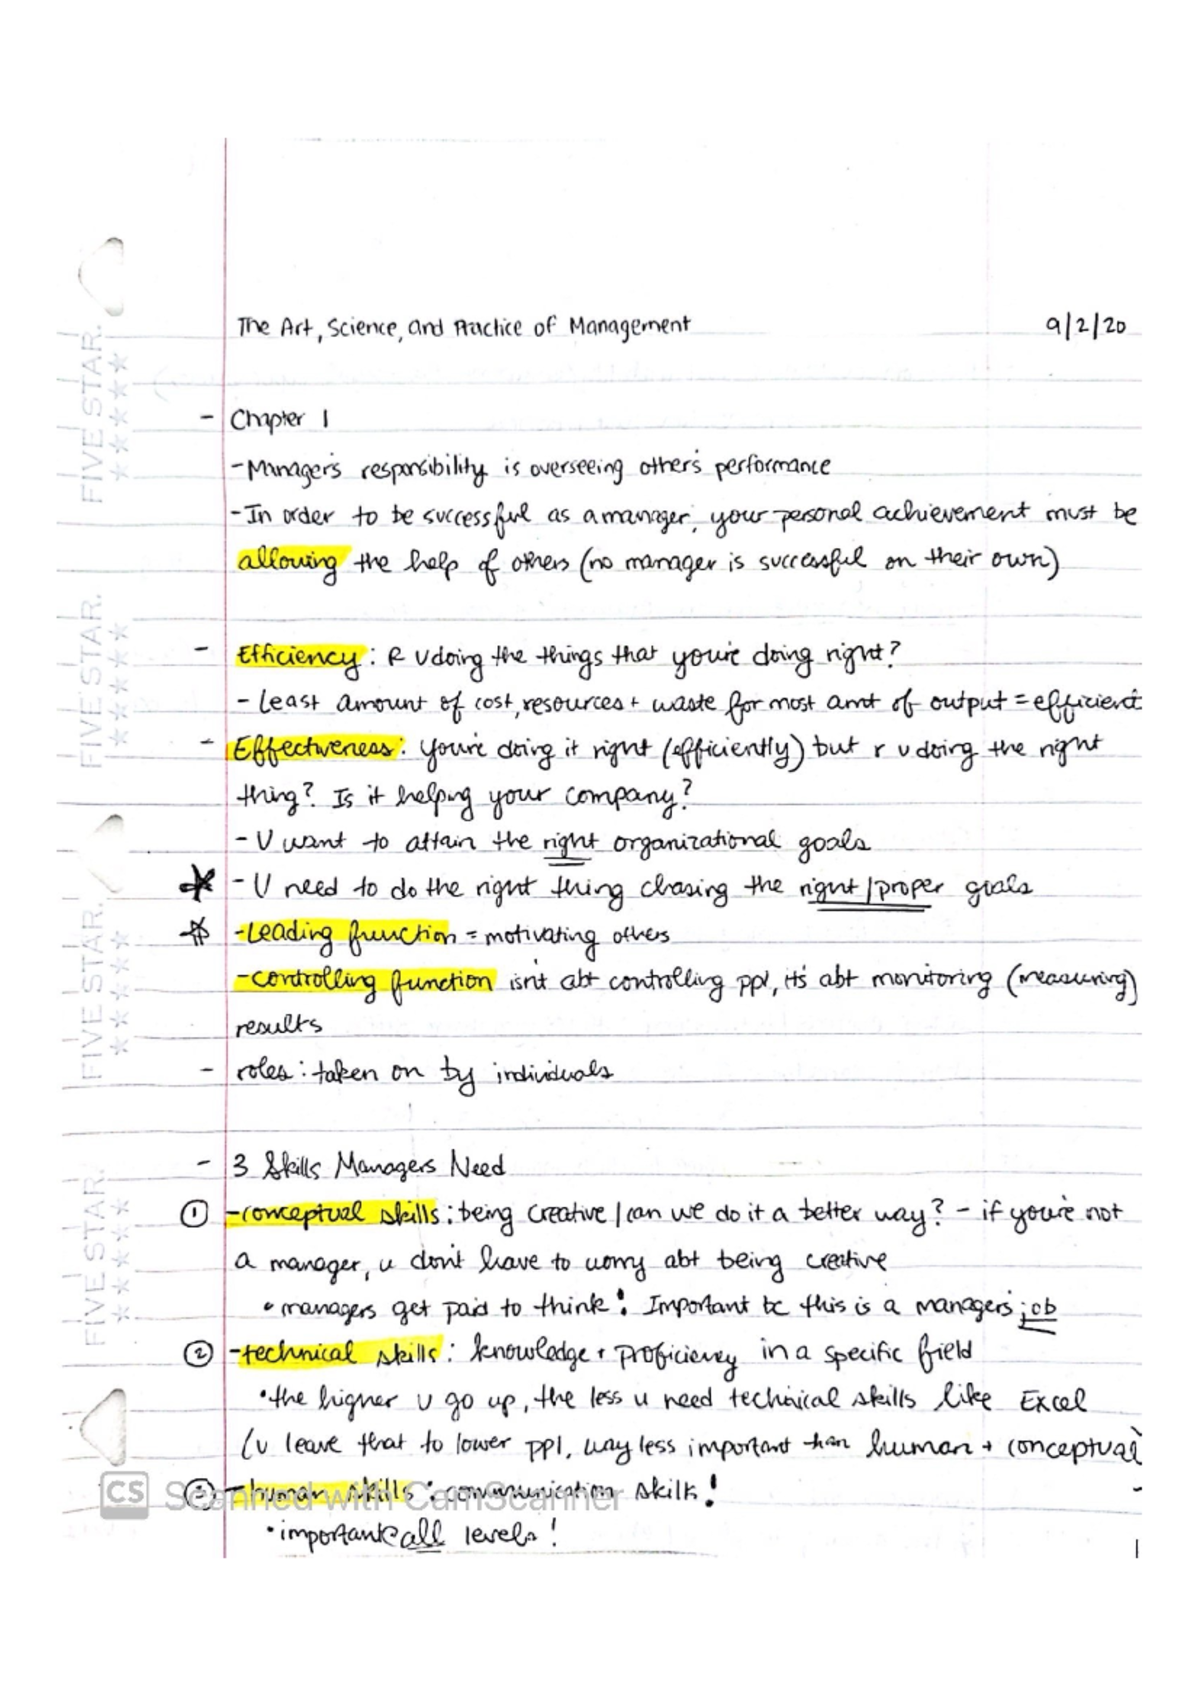 The Art, Science, and Practice of Management 9/2/20
- Chapter 1
- Manager's responsibility is overseeing other's performance
- In order to be successful as a manager, your personal achievement must be
allowing the help of others (no manager is successful on their own)
- Efficiency: R U doing the things that you're doing right?
- Least amount of cost, resources + waste for most amt of output = efficient
- Effectiveness: you're doing it right (efficiently) but r u doing the right
thing? Is it helping your company?
- U want to attain the right organizational goals
- U need to do the right thing chasing the right/proper goals
- Leading function = motivating others
- controlling function isn't abt controlling ppl, it's abt monitoring (measuring)
results
- roles: taken on by individuals
- 3 Skills Managers Need
① - conceptual skills: being creative / can we do it a better way? - if you're not
a manager, u don't have to worry abt being creative
• managers get paid to think! Important bc this is a manager's job
② - technical skills: knowledge + proficiency in a specific field
• the higher u go up, the less u need technical skills like Excel
(u leave that to lower ppl, way less important than human + conceptual
③ - human skills: communication skills!
• important @ all levels!
1
FIVE STAR.
FIVE STAR.
FIVE STAR.
FIVE STAR.
CS Scanned with CamScanner